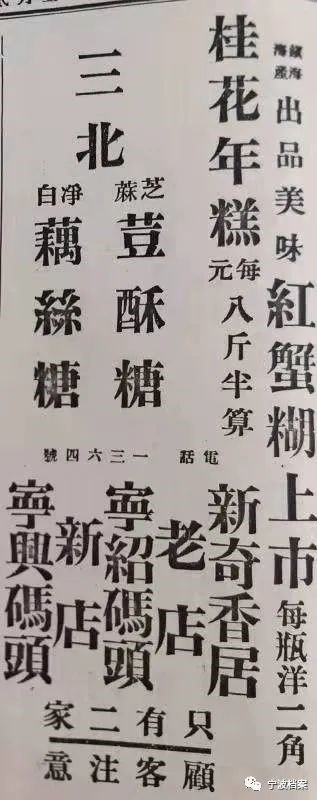 鎮海海產出品美味紅蟹糊上市每瓶洋二角
桂花年糕每元八斤半算
三北
芝蔴荳酥糖
净白藕絲糖
電話一三六四號
新奇香居
老店
寧紹碼頭
新店
寧興碼頭
只有二家
顧客注意
宁波档案